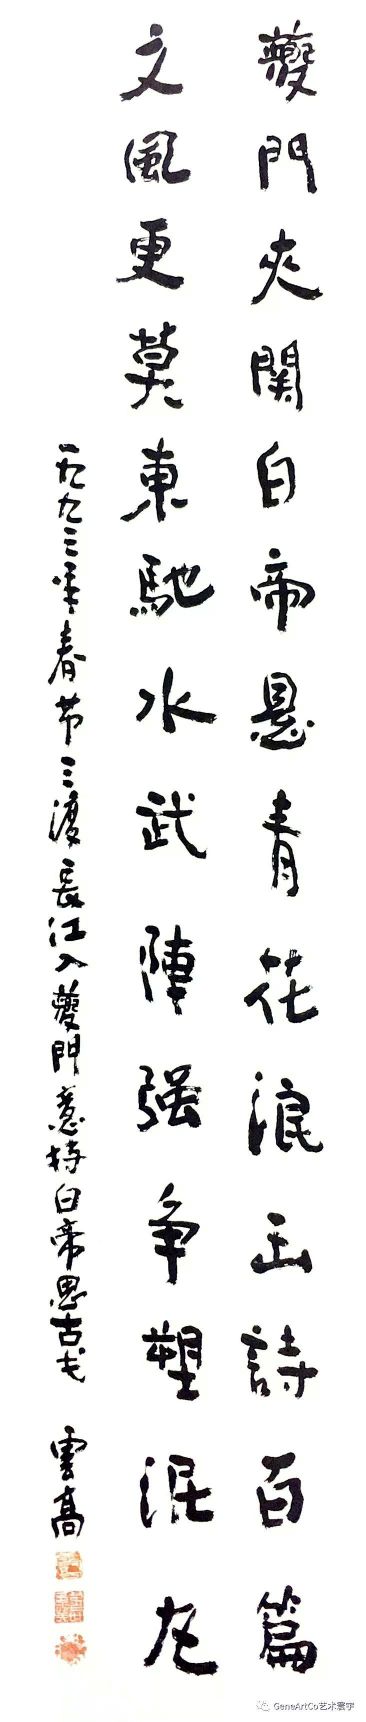 夔門夾關白帝悬青花浪玉詩百篇
文風更莫東馳水武陣强争塑泥丸
一九九三年春节三渡長江入夔門意持白帝思古戈
雲高
GeneArtCo艺术寰宇